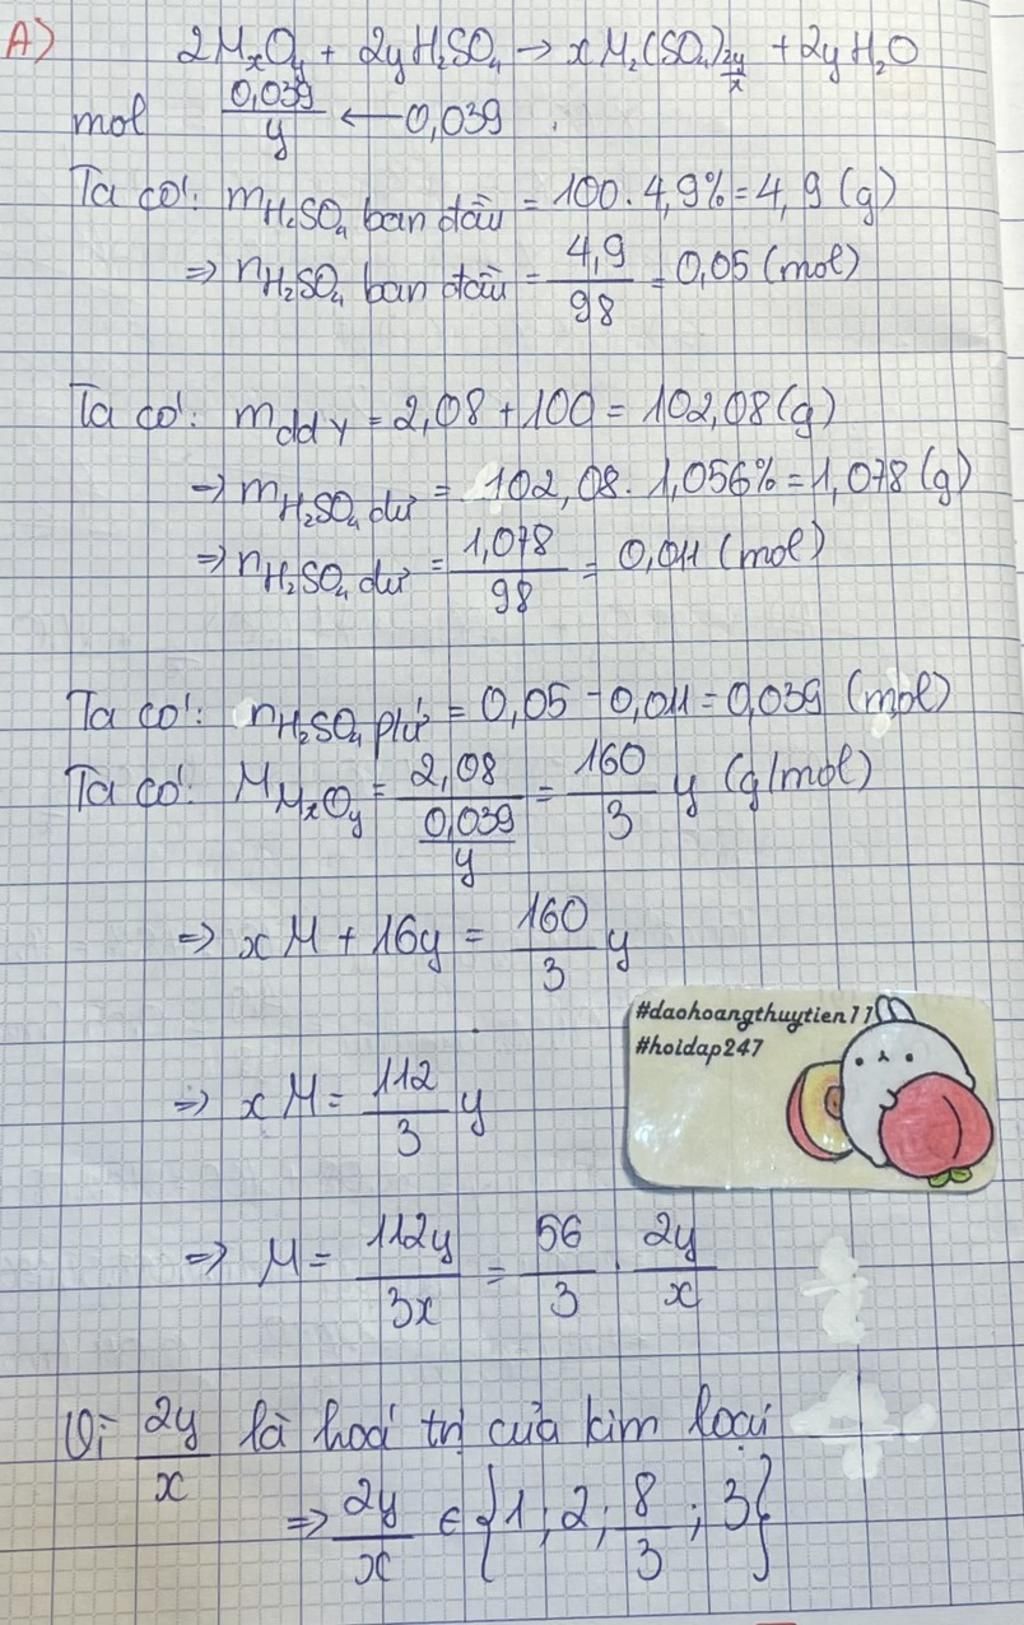 A) 2MₓOᵧ + 2yH₂SO₄ → xM₂(SO₄)_(2y/x) + 2yH₂O
mol 0,039/y ← 0,039
Ta có: m H₂SO₄ ban đầu = 100. 4,9% = 4,9 (g)
⇒ n H₂SO₄ ban đầu = 4,9/98 = 0,05 (mol)
Ta có: m dd Y = 2,08 + 100 = 102,08 (g)
→ m H₂SO₄ dư = 102,08. 1,056% = 1,078 (g)
⇒ n H₂SO₄ dư = 1,078/98 = 0,011 (mol)
Ta có: n H₂SO₄ pứ = 0,05 - 0,011 = 0,039 (mol)
Ta có: M MₓOᵧ = 2,08/(0,039/y) = 160/3 y (g/mol)
⇒ xM + 16y = 160/3 y
#daohoangthuytien11
#hoidap247
⇒ xM = 112/3 y
⇒ M = 112y/3x = 56/3 . 2y/x
Vì 2y/x là hoá trị của kim loại
⇒ 2y/x ∈ {1; 2; 8/3; 3}